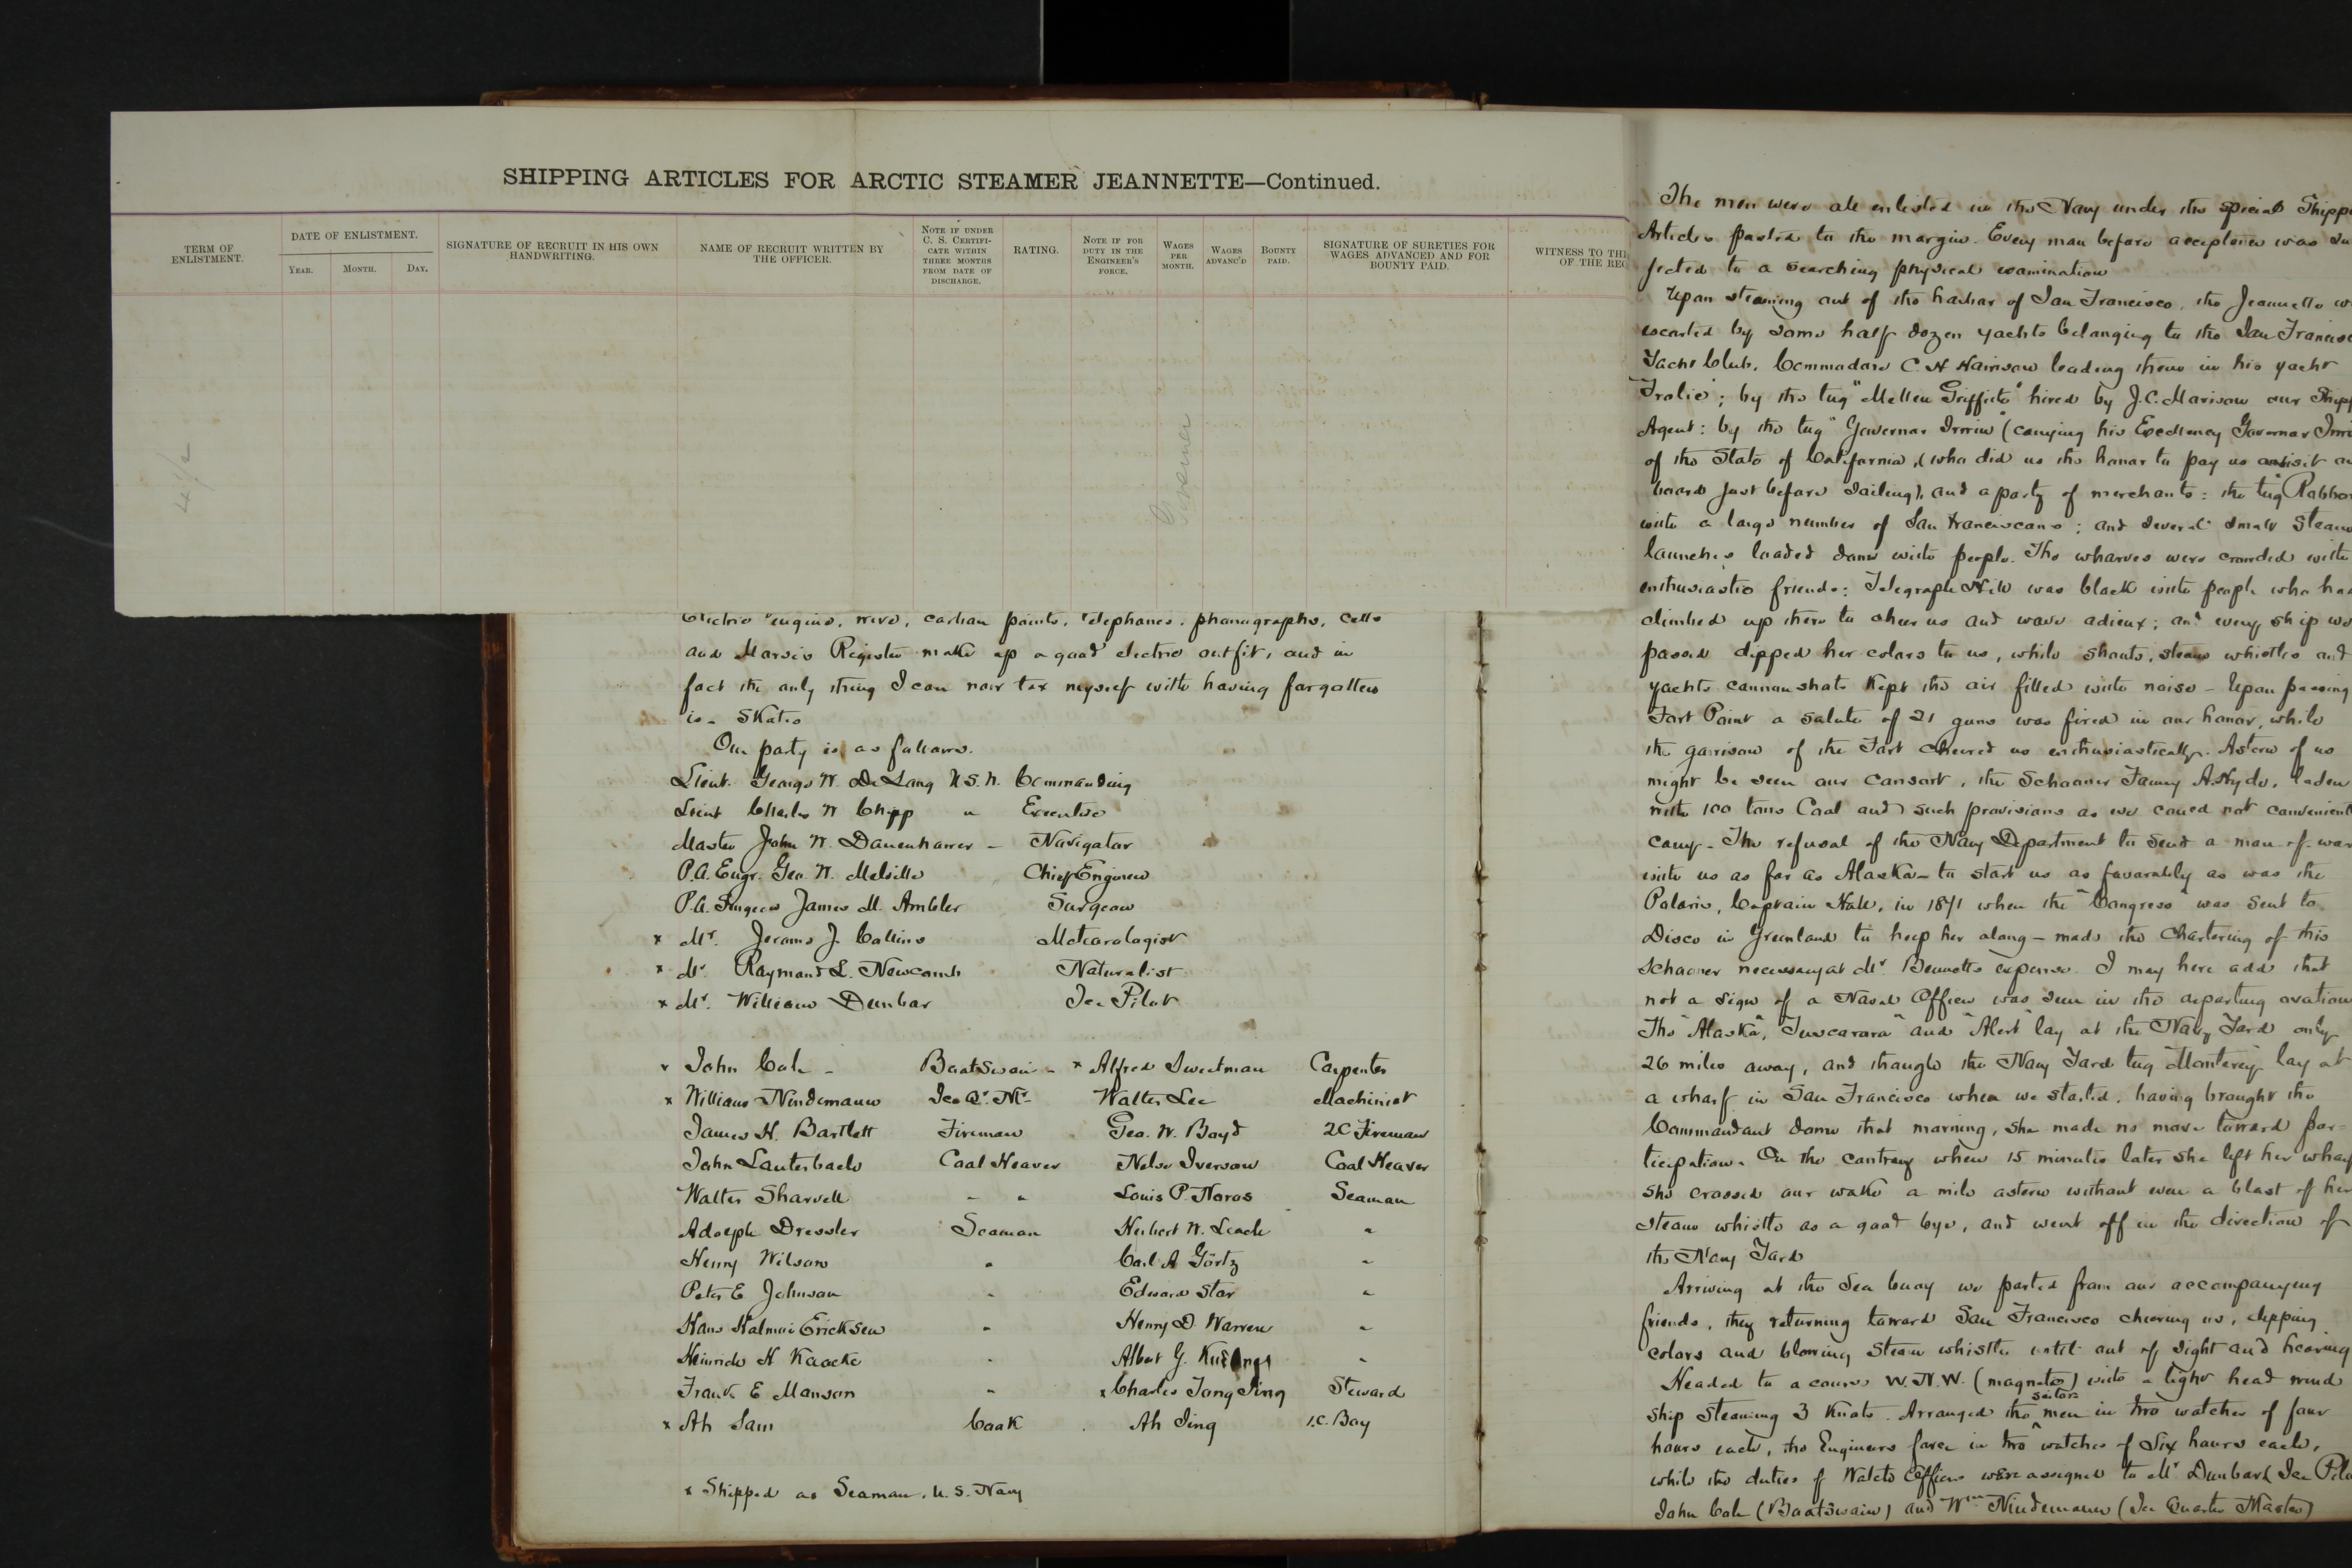 SHIPPING ARTICLES FOR ARCTIC STEAMER JEANNETTE—Continued.
TERM OF ENLISTMENT.
DATE OF ENLISTMENT.
YEAR. MONTH. DAY.
SIGNATURE OF RECRUIT IN HIS OWN HANDWRITING.
NAME OF RECRUIT WRITTEN BY THE OFFICER.
NOTE IF UNDER C. S. CERTIFICATE WITHIN THREE MONTHS FROM DATE OF DISCHARGE.
RATING.
NOTE IF FOR DUTY IN THE ENGINEER'S FORCE.
WAGES PER MONTH.
WAGES ADVANC'D
BOUNTY PAID.
SIGNATURE OF SURETIES FOR WAGES ADVANCED AND FOR BOUNTY PAID.
WITNESS TO
OF THE
Electric engine, wire, carbon points, Telephones, phonographs, cells
and Morse's Register make up a good electric outfit, and in
fact the only thing I can now tax myself with having forgotten
is - Skates
Our party is as follows.
Lieut. George W. De Long U.S.N. Commanding
Lieut Charles W Chipp " Executive
Master John W. Danenhower - Navigator
P.A. Engr. Geo. W. Melville Chief Engineer
P.A. Surgeon James M. Ambler Surgeon
x Mr. Jerome J. Collins Meteorologist
x Mr. Raymond L. Newcomb Naturalist
x Mr. William Dunbar Ice Pilot
x John Cole - Boatswain - x Alfred Sweetman Carpenter
x William Nindemann Ice Qr. Mr. Walter Lee Machinist
James H. Bartlett Fireman Geo. W. Boyd 2C Fireman
John Lauterbach Coal Heaver Nelse Iverson Coal Heaver
Walter Sharvell " " Louis P. Noros Seaman
Adolph Dressler Seaman Herbert W. Leach "
Henry Wilson " Carl A Görtz "
Peter E Johnson " Edward Star "
Hans Halmoi Ericksen " Henry D Warren "
Heinrich H Kaacke " Albert G. "
Frank E Manson " x Charles Tong Sing Steward
x Ah Sam Cook Ah Sing 1.C. Boy
x Shipped as Seaman, U.S. Navy
The men were all enlisted in the Navy under the special
Articles pasted to the margin. Every man before acceptance was
jected to a searching physical examination
Upon steaming out of the harbor of San Francisco, the Jeannette
escorted by some half dozen yachts belonging to the San
Yacht Club, Commodore C. H Harrison leading them in his yacht
"Frolic"; by the tug "Mellen Griffith" hired by J. C. Morison our
Agent: by the tug "Governor Irwin" (carrying his Excellency Governor
of the State of California, (who did us the honor to pay us a visit
board just before sailing), and a party of merchants: the tug
with a large number of San Franciscans; and several small
launches loaded down with people. The wharves were crowded with
enthusiastic friends: Telegraph Hill was black with people who
climbed up there to cheer us and wave adieux; and every ship
passed dipped her colors to us, while shouts, steam whistles and
yachts cannon shots kept the air filled with noise - Upon passing
Fort Point a salute of 21 guns was fired in our honor, while
the garrison of the Fort cheered us enthusiastically. Astern of us
might be seen our consort, the Schooner Fanny A. Hyde, laden
with 100 tons Coal and such provisions as we could not
carry. The refusal of the Navy Department to send a man-of-war
with us as far as Alaska - to start us as favorably as was the
Polaris, Captain Hall, in 1871 when the "Congress" was sent to
Disco in Greenland to help her along - made the Chartering of this
Schooner necessary at Mr. Bennetts expense. I may here add that
not a sign of a Naval Officer was seen in the departing ovation
The "Alaska", "Tuscarora" and "Alert" lay at the Navy Yard only
26 miles away, and though the Navy Yard tug "Monterey" lay at
a wharf in San Francisco when we started, having brought the
Commandant down that morning, she made no move toward par-
ticipation. On the contrary when 15 minutes later she left her
she crossed our wake a mile astern without even a blast of her
steam whistle as a good bye, and went off in the direction of
the Navy Yard
Arriving at the Sea buoy we parted from our accompanying
friends, they returning toward San Francisco cheering us, dipping
colors and blowing steam whistles until out of sight and hearing
Headed to a course W.N.W. (magnetic) with a light head wind
Ship steaming 3 Knots. Arranged the men in two watches of four
hours each, the Engineers force in two watches of six hours each,
while the duties of Watch Officers were assigned to Mr Dunbar (Ice
John Cole (Boatswain) and Wm Nindemann (Ice Quarter Master)